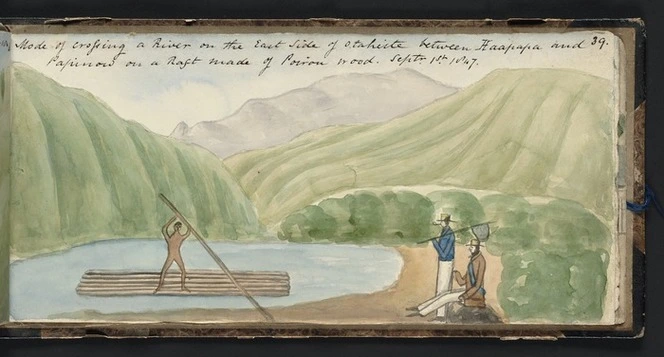 Mode of crossing a River on the East Side of otaheite between Haapapa and 39.
Papinow on a Raft made of Poirou wood. Septr 1st 1847.